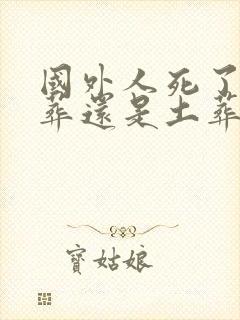 國外人死了
葬還是土葬
寶姑娘